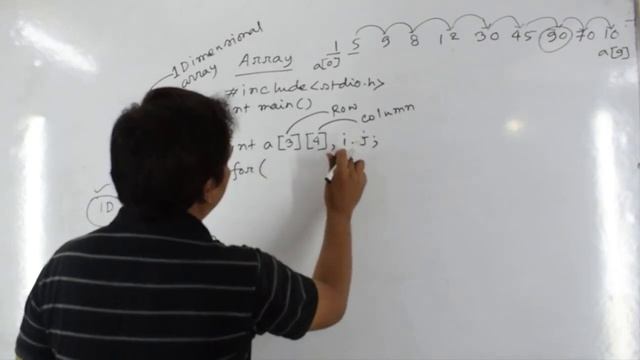 1Dimensional
array
Array
1
a[0]
5 9 8 12 30 45 90 70 10
a[9]
#include<stdio.h>
nt main()
Row
column
nt a[3][4], i, j;
for(
1D